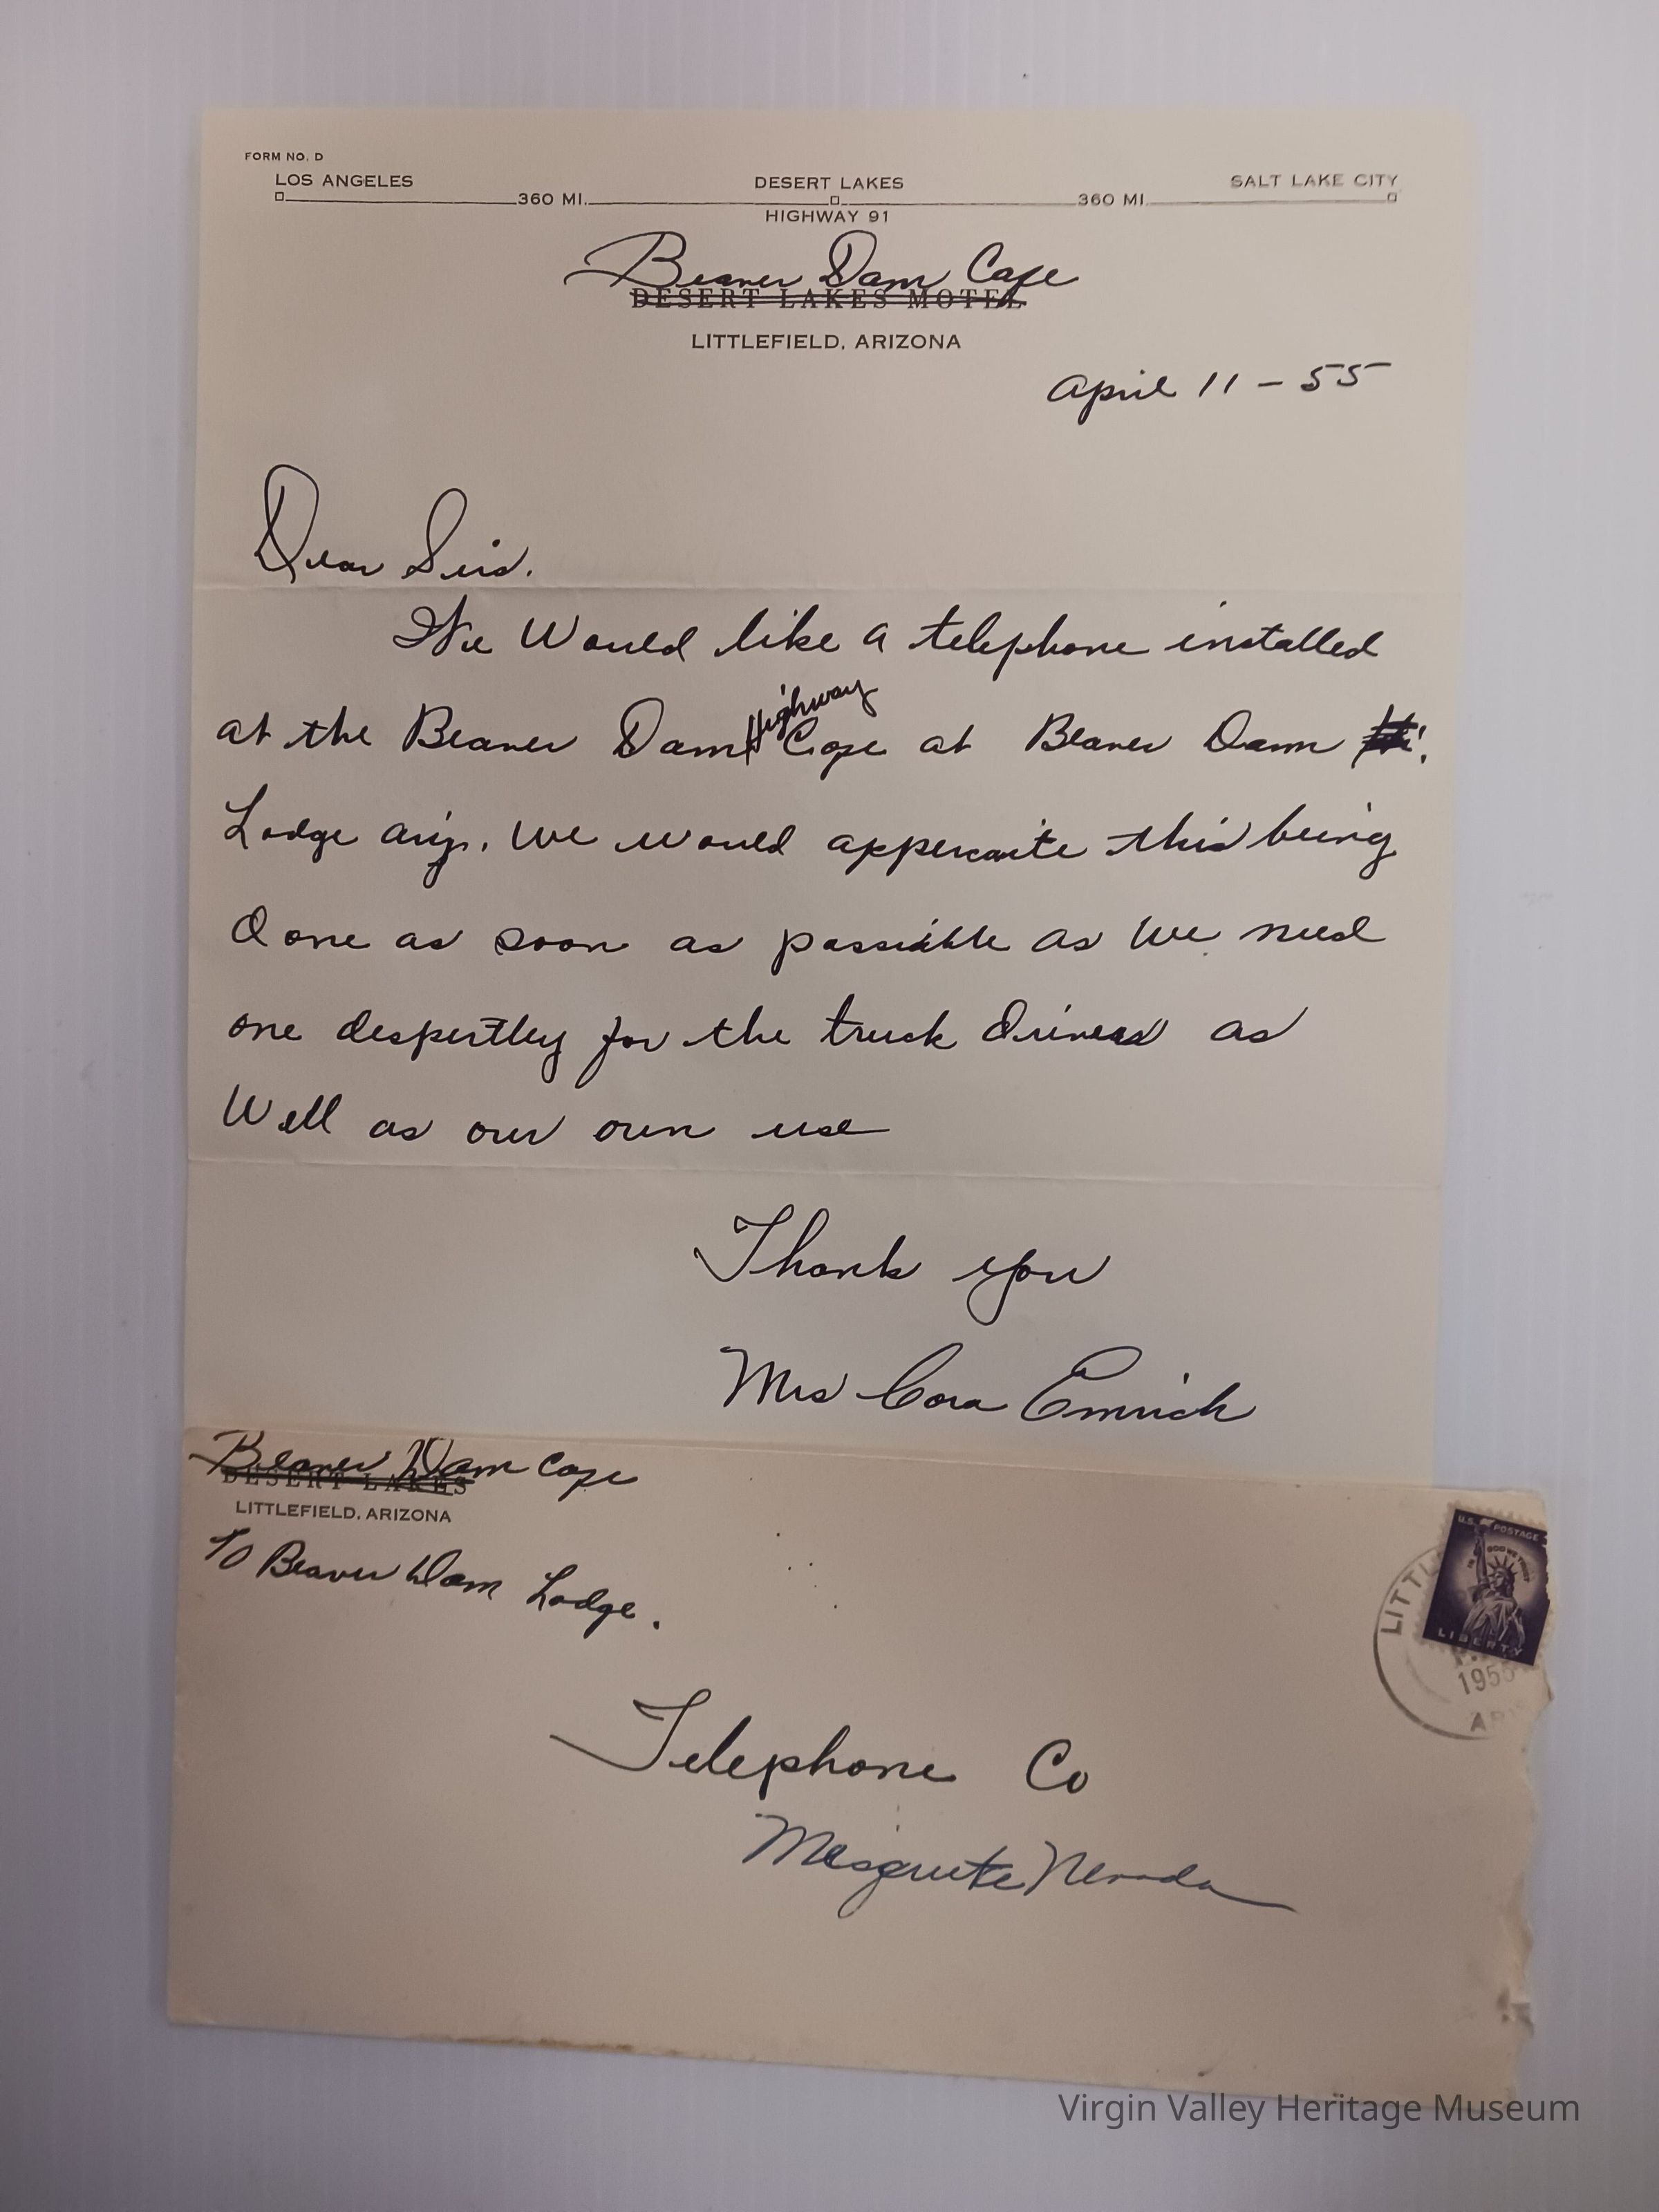 FORM NO. D
LOS ANGELES DESERT LAKES SALT LAKE CITY
360 MI. 360 MI.
HIGHWAY 91
Beaver Dam Cafe
DESERT LAKES MOTEL
LITTLEFIELD, ARIZONA
April 11 - 55
Dear Sirs.
We Would like a telephone installed
Highway
at the Beaver Dam Cafe at Beaver Dam
Lodge Ariz. We would apperciate this being
Done as soon as possible as We need
one despertley for the truck Drivers as
Well as our own use
Thank you
Mrs Cora Emrich
Beaver Dam Cafe
DESERT LAKES
LITTLEFIELD, ARIZONA
% Beaver Dam Lodge.
U.S. POSTAGE
IN GOD WE TRUST
LIBERTY
LITTL
1955
AR
Telephone Co
Mesquite Nevada
Virgin Valley Heritage Museum